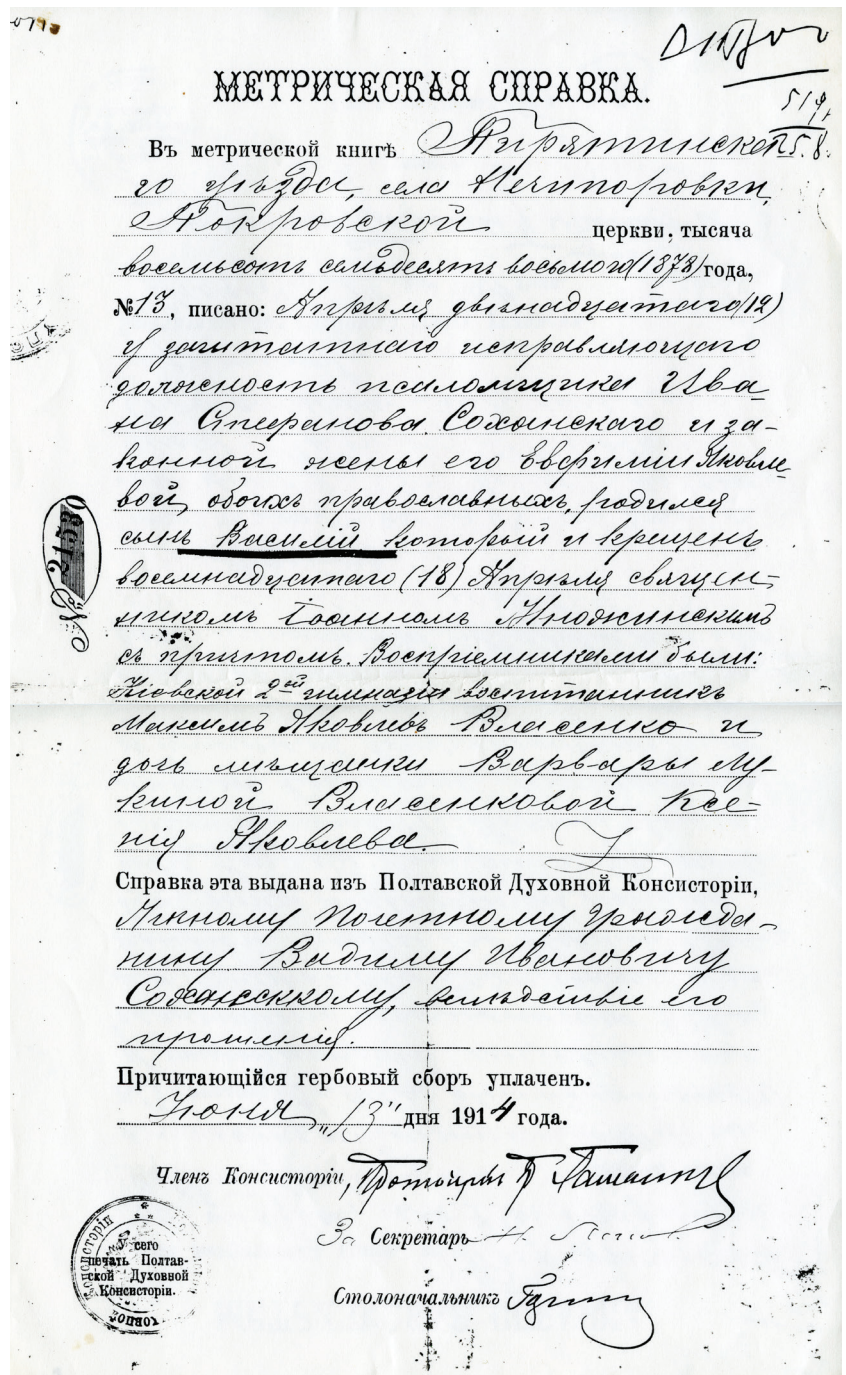 МЕТРИЧЕСКАЯ СПРАВКА.
519
Въ метрической книгѣ Пирятинска-
го уѣзда, села Нечипоровки,
Покровской церкви, тысяча
восемьсотъ семьдесятъ восьмого (1878) года,
№ 13, писано: Апрѣля двѣнадцатаго (12)
у заштатнаго исправляющаго
должность псаломщика Ива-
на Стефанова Соханскаго и за-
конной жены его Евфиміи Яковле-
вой, обоихъ православныхъ, родился
сынъ Василій который и крещенъ
восемнадцатаго (18) Апрѣля священ-
никомъ Іоанномъ
съ причтомъ. Воспріемниками были:
Кіевской 2ой гимназіи воспитанникъ
Максимъ Яковлевъ Власенко и
дочь мѣщанки Варвары Лу-
киной Власенковой Ксе-
нія Яковлева.
Справка эта выдана изъ Полтавской Духовной Консисторіи,
Личному Почетному Гражда-
нину Вадиму Ивановичу
Соханскому, вслѣдствіе его
прошенія.
Причитающійся гербовый сборъ уплаченъ.
Іюня „13" дня 1914 года.
№ 21580
Членъ Консисторіи, Протоіерей
За Секретарь
Столоначальникъ
У сего
печать Полтав-
ской Духовной
Консисторіи.